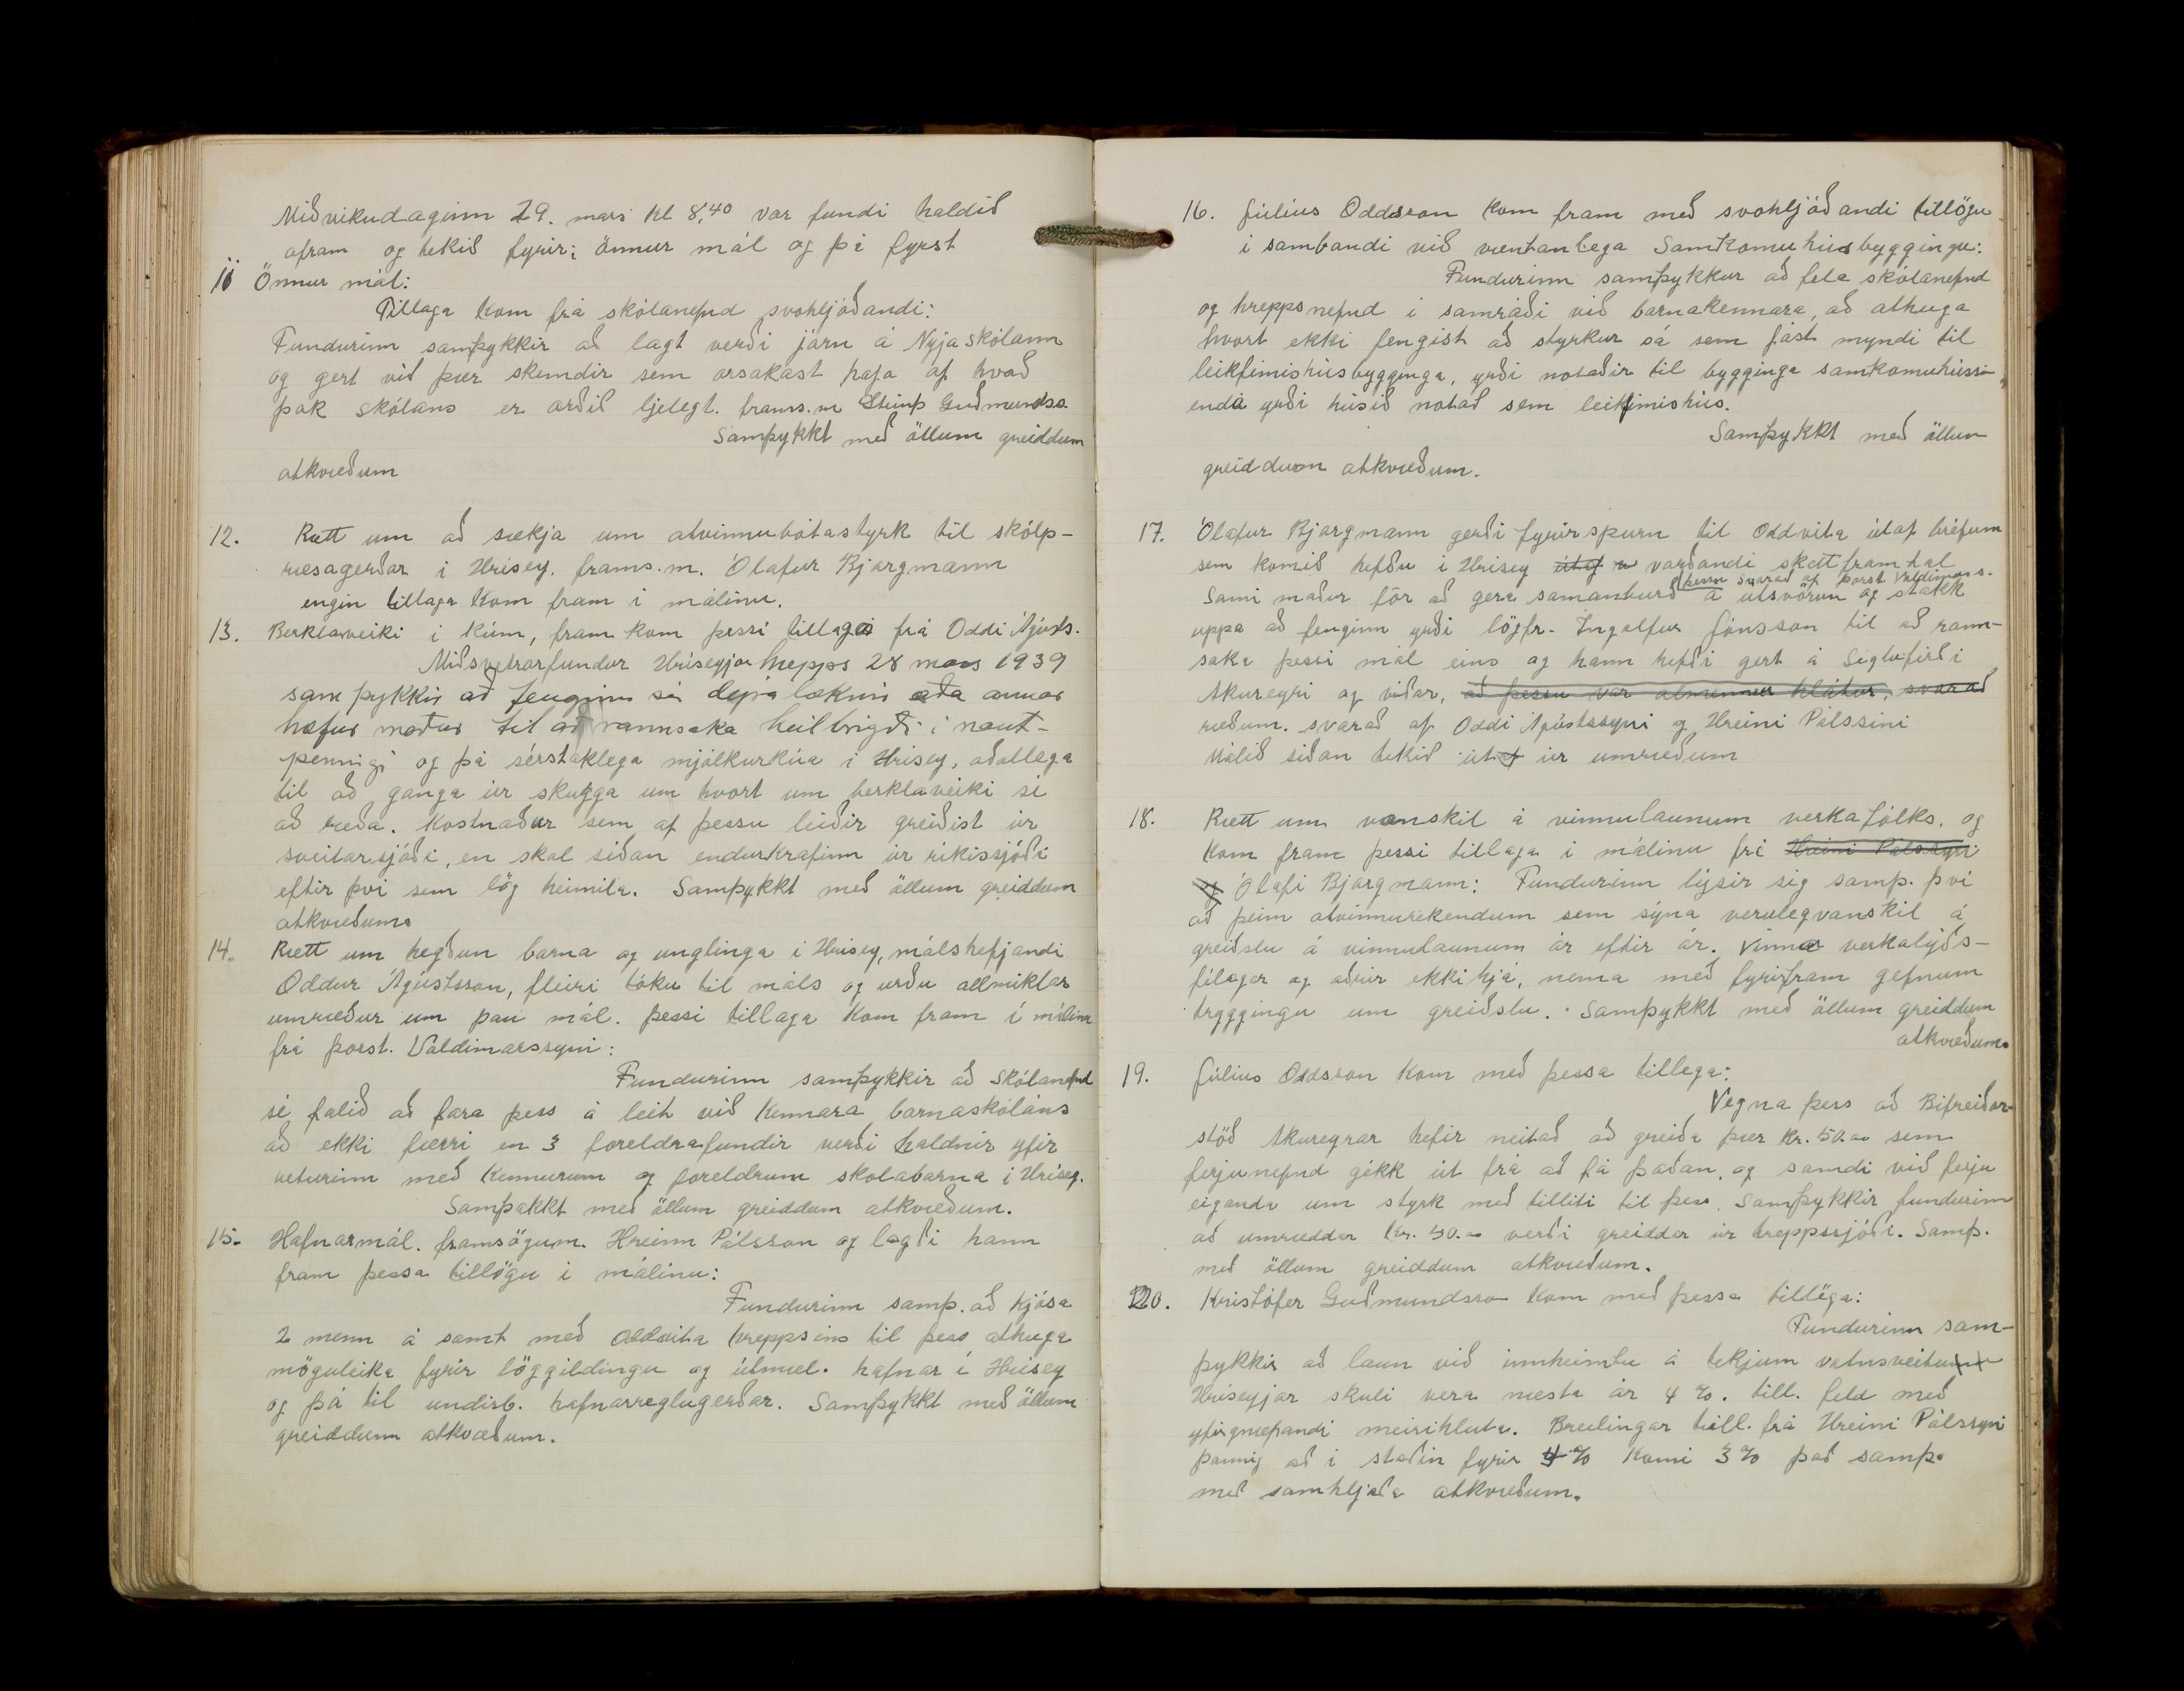 Miðvikudaginn 29. mars kl 8,40 var fundi haldið
afram og tekið fyrir; önnur mál og þá fyrst
11 Önnur mál:
Tillaga kom frá skólanefnd svohljóðandi:
Fundurinn samþykkir að lagt verði járn á Nýjaskólann
og gert við þær skemdir sem orsakast hafa af hvað
þak skólans er orðið ljelegt. frams.m Steinþ Guðmundss.
Samþykkt með öllum greiddum
atkvæðum
12. Rætt um að sækja um atvinnubótastyrk til skólp-
ræsagerðar i Hrisey. frams.m. Ólafur Bjargmann
engin tillaga kom fram i málinu.
13. Berklaveiki i kúm, fram kom þessi tillaga frá Oddi Ágústs.
Miðsvetrarfundur Hriseyjar hrepps 28 mars 1939
samþykkir að fenginn sé dýralæknir eða annar
hæfur maður til að rannsaka heilbrigði i naut-
penningi og þá sérstaklega mjólkurkúa i Hrisey, aðallega
til að ganga úr skugga um hvort um berklaveiki sé
að ræða. Kostnaður sem af þessu leiðir greiðist úr
sveitarsjóði, en skal síðan endurkrafinn úr rikissjóði
eftir því sem lög heimila. Samþykkt með öllum greiddum
atkvæðum
14. Rætt um hegðun barna og unglinga i Hrisey, málshefjandi
Oddur Ágústsson, fleiri tóku til máls og urðu allmiklar
umræður um þau mál. þessi tillaga kom fram í málinu
frá þorst. Valdimarssyni:
Fundurinn samþykkir að Skólanefnd
sé falið að fara þess á leit við kennara barnaskólans
að ekki færri en 3 foreldrafundir verði haldnir yfir
veturinn með kennurum og foreldrum skolabarna i Hrísey.
Samþakkt með öllum greiddum atkvæðum.
15. Hafnarmál. framsögum. Hreinn Pálsson og lagði hann
fram þessa tillögu i málinu:
Fundurinn samþ. að kjósa
2 menn á samt með Oddvita hreppsins til þess athuga
möguleika fyrir löggildingu og útmæl. hafnar í Hrisey
og þá til undirb. hafnarreglugerðar. Samþykkt með öllum
greiddum atkvæðum.
16. Júlíus Oddsson kom fram með svohljóðandi tillögu
i sambandi við væntanlega Samkomuhúsbyggingu:
Fundurinn samþykkur að fela skólanefnd
og hreppsnefnd i samráði við barnakennara, að athuga
hvort ekki fengist að styrkur sá sem fást myndi til
leikfimishúsbygginga, yrði notaðir til bygginga samkomuhússi
enda yrði húsið notað sem leikfimishús.
Samþykkt með öllum
greiddum atkvæðum.
17. Ólafur Bjargmann gerði fyrirspurn til Oddvita útaf bréfum
sem komið hefðu i Hrisey útaf varðandi skattframtal
þessu svarað af þorst Valdimars.
Sami maður fór að gera samanburð á útsvörun og stakk
uppá að fenginn yrði lögfr. Ingolfur Jónsson til að rann-
saka þessi mál eins og hann hefði gert á Siglufirði
Akureyri og viðar, að þessu var almennur hlátur, svarað
ræðum. svarað af Oddi Ágústssyni og Hreini Pálssini
Málið siðan tekið út af úr umræðum
18. Rætt um vanskil á vinnulaunum verkafólks. og
kom fram þessi tillaga i málinu frá Hreini Pálssyni
og Ólafi Bjargmann: Fundurinn lýsir sig samþ. því
að þeim atvinnurekendum sem sýna verulegvanskil á
greiðslu á vinnulaunum ár eftir ár. Vinnar verkalýðs-
félagar og aðrir ekki hjá, nema með fyrirfram gefnum
tryggingu um greiðslu. Samþykkt með öllum greiddum
atkvæðum.
19. Júlíus Oddsson kom með þessa tillega:
Vegna þess að Bifreiðar-
stöð Akureyrar hefir neitað að greiða þær kr. 50.00 sem
ferjunefnd gékk út frá að fá þaðan, og samdi við ferju
eiganda um styrk með tilliti til þess, Samþykkir fundurinn
að umræddar kr. 50.00 verði greiddar úr hreppssjóði. Samþ.
með öllum greiddum atkvæðum.
20. Kristófer Guðmundsson kom með þessa tillöga:
Fundurinn sam-
þykkir að laun við innheimtu á tekjum vatnsveitunn
Hriseyjar skuli vera næsta ár 4%. till. feld með
yfirgnæfandi meirihluta. Breitingar till. frá Hreini Pálssyni
þannig að i staðin fyrir 4% komi 3% það samþ.
með samhljóða atkvæðum.